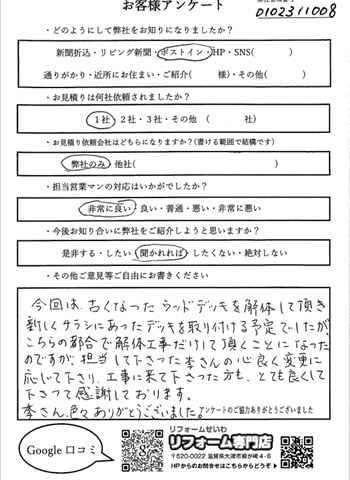 お客様アンケート
0102311008
・どのようにして弊社をお知りになりましたか？
新聞折込・リビング新聞・ポストイン・HP・SNS(　　　)
通りがかり・近所にお住まい・ご紹介(　　　様)・その他(　　　)
・お見積りは何社依頼されましたか？
1社・2社・3社・その他（　　　社)
・お見積り依頼会社はどちらになりますか？(書ける範囲で結構です)
弊社のみ・他社(　　　)
・担当営業マンの対応はいかがでしたか？
非常に良い・良い・普通・悪い・非常に悪い
・今後お知り合いに弊社をご紹介しようと思いますか？
是非する・したい・聞かれれば・したくない・絶対しない
・その他ご意見等ご自由にお書きください
今回は、古くなったウッドデッキを解体して頂き
新しくチラシにあったデッキを取り付ける予定でしたが、
こちらの都合で解体工事だけして頂くことになった
のですが、担当して下さった李さんの心良く変更に
応じて下さり、工事に来て下さった方も、とても良くして
下さって感謝しております。
李さん、色々ありがとうございました。
アンケートのご協力ありがとうございました
Google口コミ
リフォームせいわ
リフォーム専門店
〒520-0022 滋賀県大津市柳が崎4-6
HPからのお問合せはこちらからどうぞ